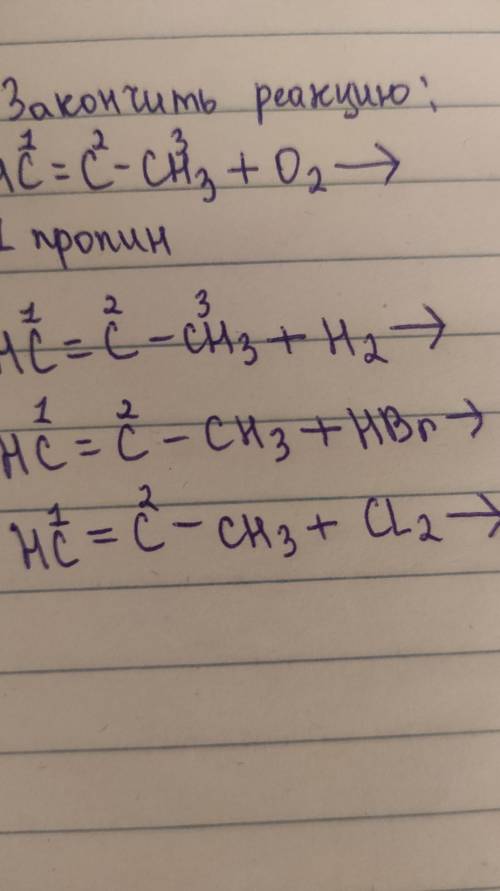 Закончить реакцию:
HC¹=C²-CH₃³+O₂→
1 пропин
HC¹=C²-CH₃³+H₂→
HC¹=C²-CH₃+HBr→
HC¹=C²-CH₃+CL₂→